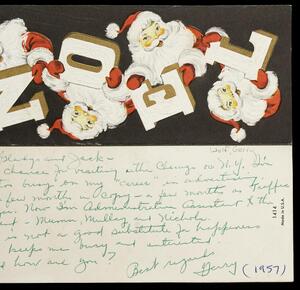 NOEL
Wolf, Gerry
Gladys and Jack -
chance for visiting with Chenys on N.Y. I'm
to busy on my "career" in advertising
few months in Copy, a few months in Traffic
you. Now I'm Administrative Assistant to the
and a Mumm, Mullay and Nichols.
is not a good substitute for happiness
keeps me busy and interested.
how are you?
Best regards
Gerry (1957)
1414
Made in U.S.A.